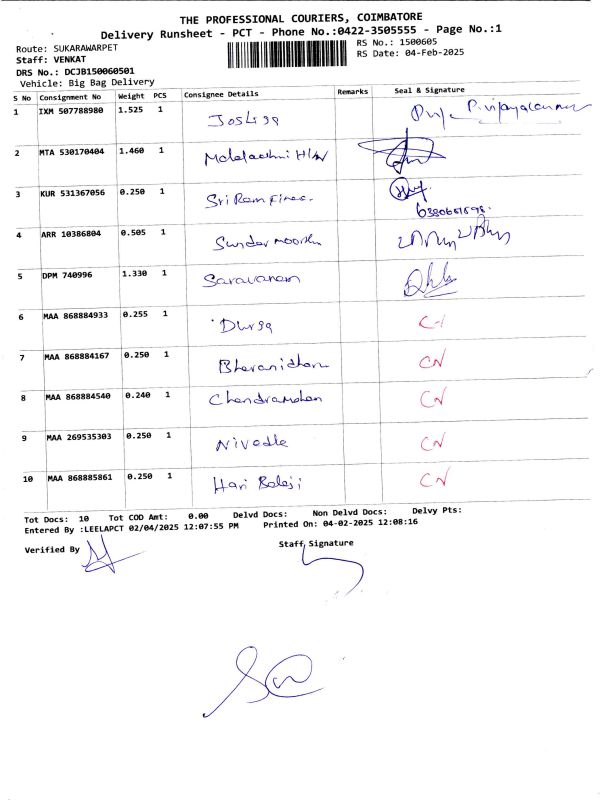 THE PROFESSIONAL COURIERS, COIMBATORE
Delivery Runsheet - PCT - Phone No.:0422-3505555 - Page No.:1
Route: SUKARAWARPET
RS No.: 1500605
Staff: VENKAT
RS Date: 04-Feb-2025
DRS No.: DCJB150060501
Vehicle: Big Bag Delivery
S No Consignment No Weight PCS Consignee Details Remarks Seal & Signature
1 IXM 507788980 1.525 1
2 MTA 530170404 1.460 1
3 KUR 531367056 0.250 1 Sri Ram
4 ARR 10386804 0.505 1
5 DPM 740996 1.330 1 Saravanan
6 MAA 868884933 0.255 1 Durga
7 MAA 868884167 0.250 1 CN
8 MAA 868884540 0.240 1 Chandramohan CN
9 MAA 269535303 0.250 1 CN
10 MAA 868885861 0.250 1 Hari Balaji CN
Tot Docs: 10 Tot COD Amt: 0.00 Delvd Docs: Non Delvd Docs: Delvy Pts:
Entered By :LEELAPCT 02/04/2025 12:07:55 PM Printed On: 04-02-2025 12:08:16
Verified By
Staff Signature